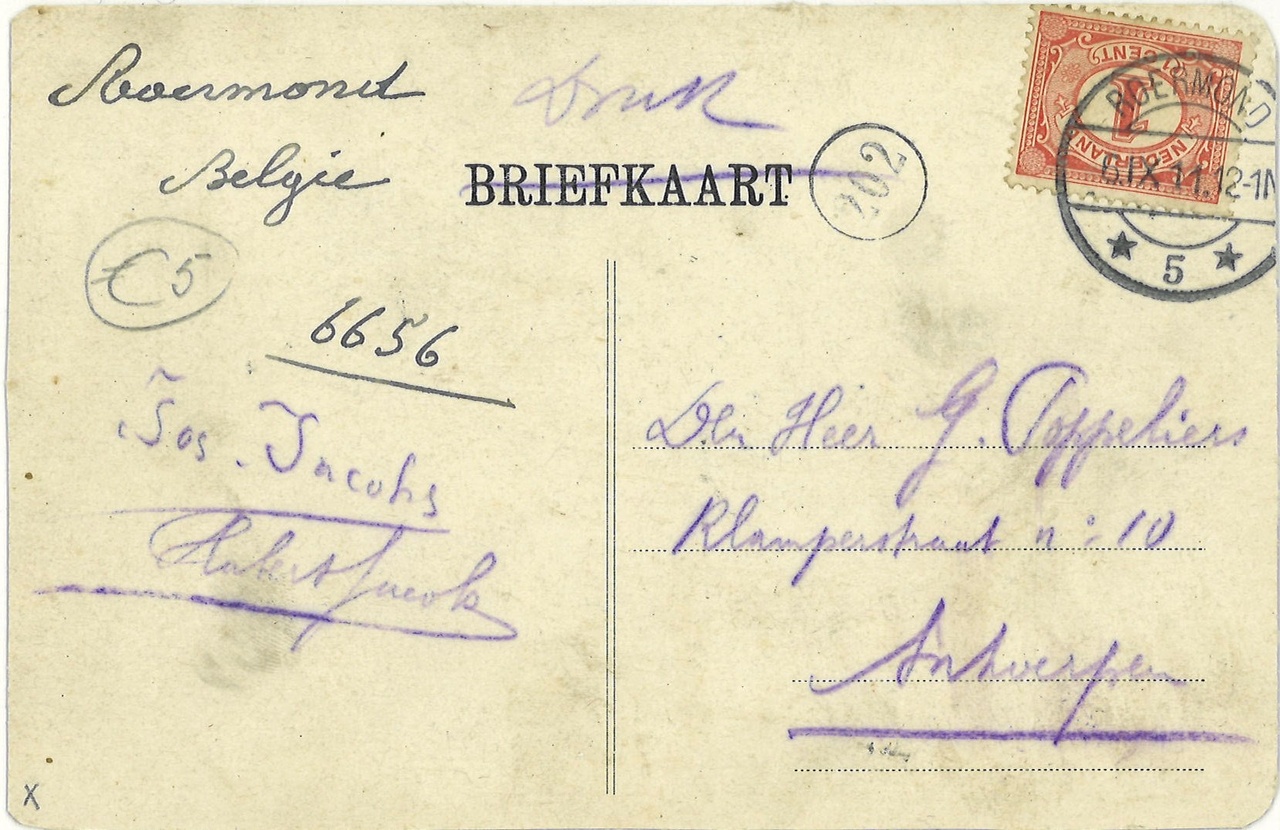 Roermond
Belgie
Druk
BRIEFKAART
202
1 CENT
NEDERLAND
ROERMOND
6.IX.11.12-1N
5
€5
6656
Jos. Jacobs
Hubert Jacobs
Den Heer G. Poppeliers
Klamperstraat n° 10
Antwerpen
X